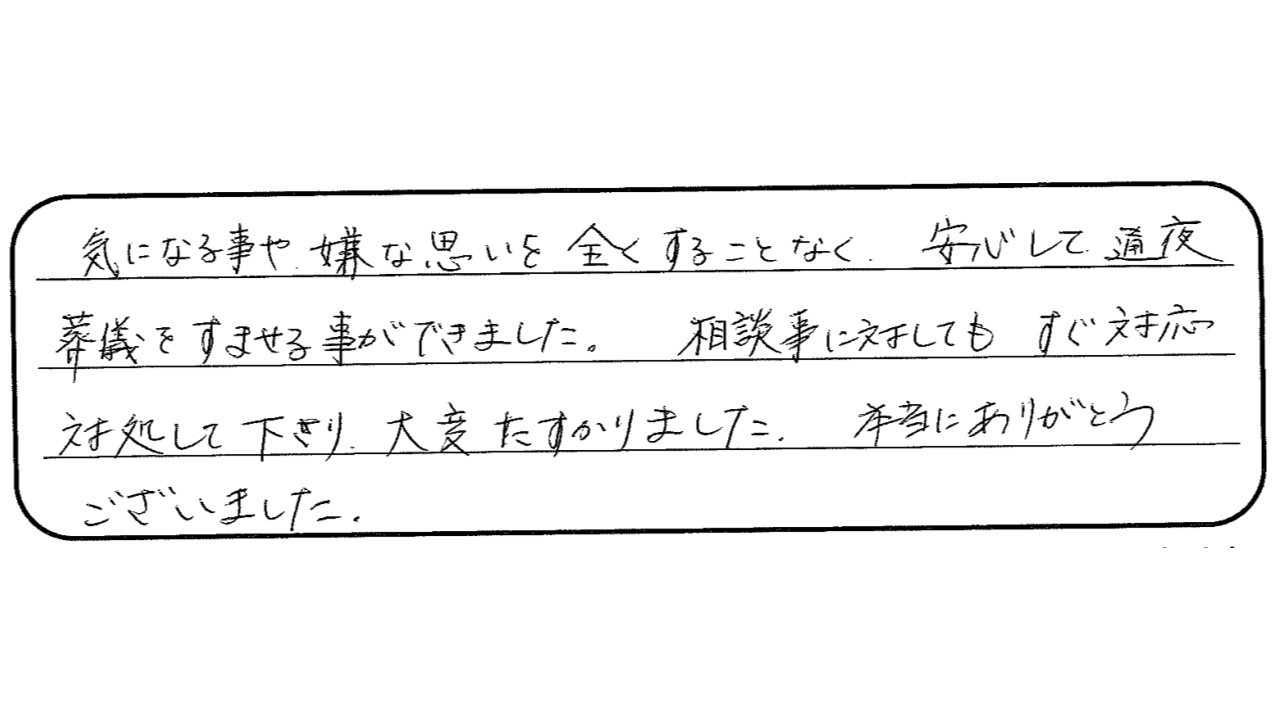 気になる事や、嫌な思いを全くすることなく、安心して、通夜
葬儀をすませる事ができました。 相談事に対しても すぐ対応
対処して下さり、大変たすかりました。 本当にありがとう
ございました。